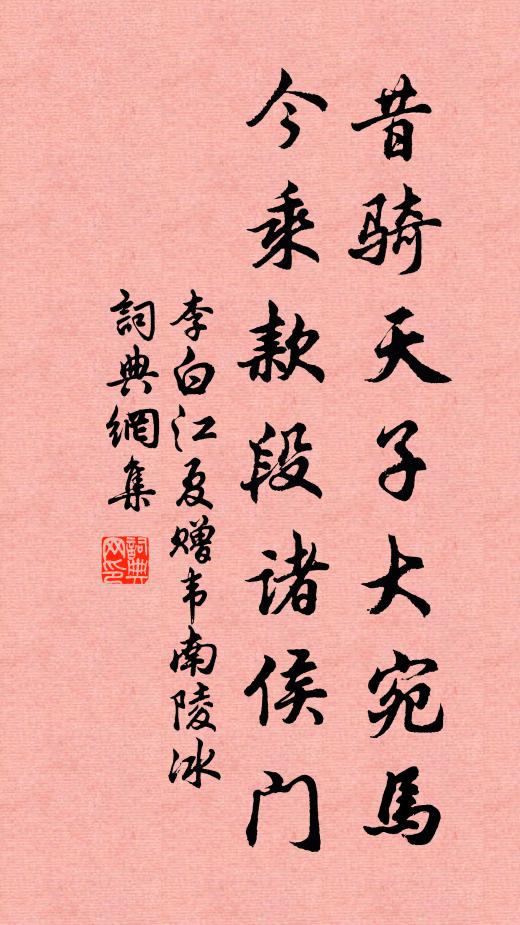 昔骑天子大宛馬
今乘款段诸侯门
李白江夏赠韦南陵冰
詞典網集
詞典
网印